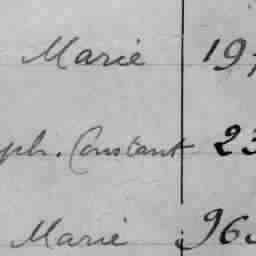 Marie 197
ph. Constant 23
Marie 963